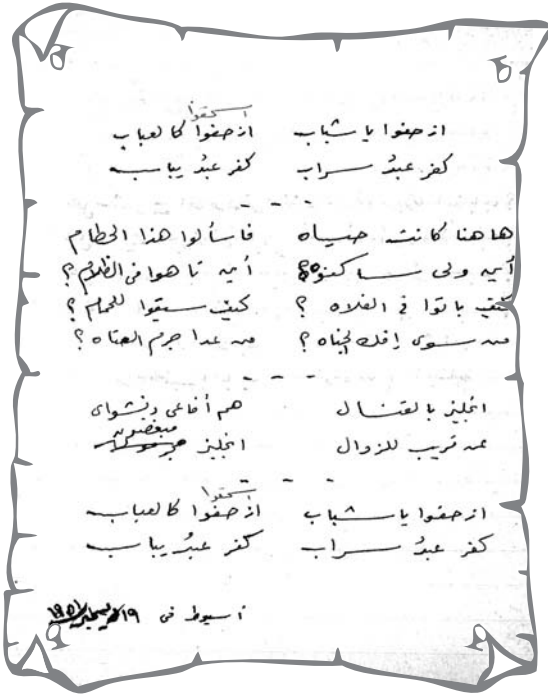 اسحقوا
ازحفوا يا شباب ازحفوا كالعباب
كفر عبدُ سراب كفر عبدُ يباب
هاهنا كانت حياه فاسألوا هذا الحطام
أين ولى ساكنوه؟ أين تاهوا فى الظلام؟
كيف باتوا فى الفلاه؟ كيف سيقوا للحمام؟
من سوى إفك لجناه؟ من عدا جرم العتاه؟
انجليز بالقتال هم أفاعى دنشواى
عن قريب للزوال انجليز مبغضون
اسحقوا
ازحفوا يا شباب ازحفوا كالعباب
كفر عبدُ سراب كفر عبدُ يباب
أسيوط فى ١٩ ديسمبر ١٩٥١